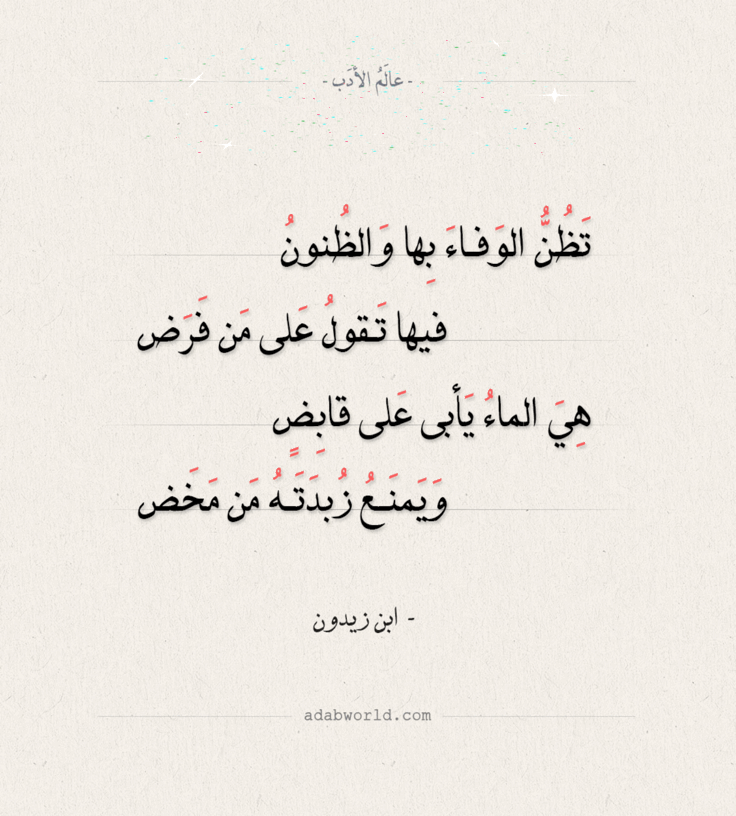 - عالَمُ الأدَب -
تَظُنُّ الوَفاءَ بِها وَالظُنونُ
فيها تَقولُ عَلى مَن فَرَض
هِيَ الماءُ يَأبى عَلى قابِضٍ
وَيَمنَعُ زُبدَتَهُ مَن مَخَض
- ابن زيدون
adabworld.com